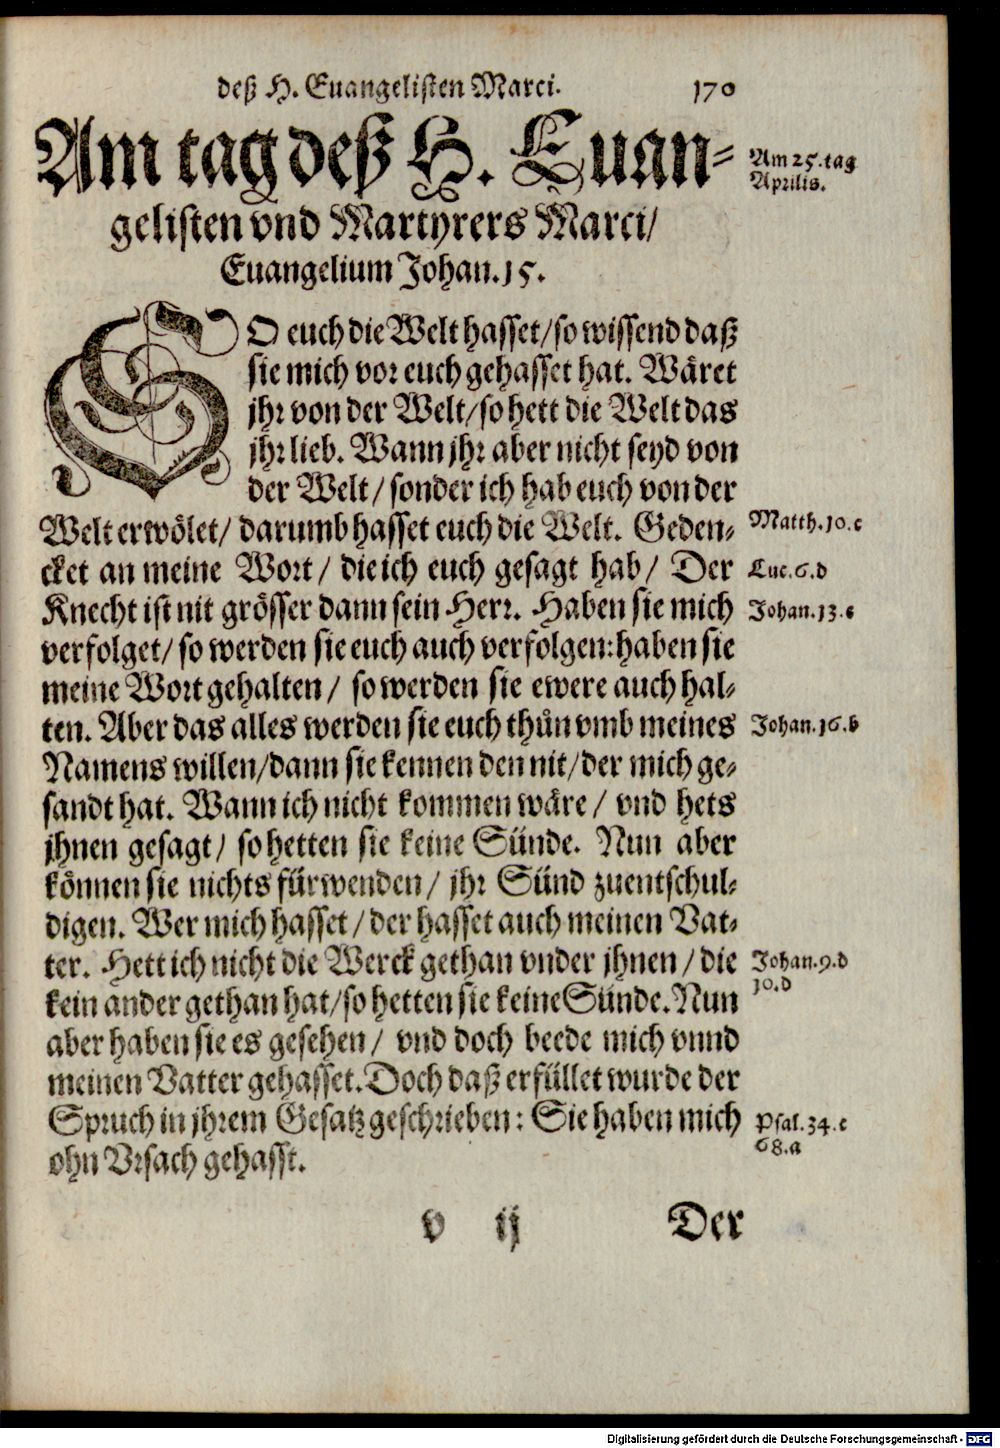 deß H. Euangelisten Marci. 170
Am tag deß H. Euan-
Am 25. tag
Aprilis.
gelisten vnd Martyrers Marci/
Euangelium Johan. 15.
SO euch die Welt hasset/ so wissend daß
sie mich vor euch gehasset hat. Wäret
jhr von der Welt/ so hett die Welt das
jhr lieb. Wann jhr aber nicht seyd von
der Welt/ sonder ich hab euch von der
Welt erwölet/ darumb hasset euch die Welt. Geden-
Matth. 10. c
cket an meine Wort/ die ich euch gesagt hab/ Der
Luc. 6. d
Knecht ist nit grösser dann sein Herr. Haben sie mich
Johan. 13. c
verfolget/ so werden sie euch auch verfolgen: haben sie
meine Wort gehalten/ so werden sie ewere auch hal-
ten. Aber das alles werden sie euch thůn vmb meines
Johan. 16. b
Namens willen/ dann sie kennen den nit/ der mich ge-
sandt hat. Wann ich nicht kommen wäre/ vnd hets
jhnen gesagt/ so hetten sie keine Sünde. Nun aber
können sie nichts fürwenden/ jhr Sünd zuentschul-
digen. Wer mich hasset/ der hasset auch meinen Vat-
ter. Hett ich nicht die Werck gethan vnder jhnen/ die
Johan. 9. d
10. d
kein ander gethan hat/ so hetten sie keine Sünde. Nun
aber haben sie es gesehen/ vnd doch beede mich vnnd
meinen Vatter gehasset. Doch daß erfüllet wurde der
Spruch in jhrem Gesatz geschrieben: Sie haben mich
Psal. 34. c
68. a
ohn Vrsach gehasst.
v ij Der
Digitalisierung gefördert durch die Deutsche Forschungsgemeinschaft - DFG